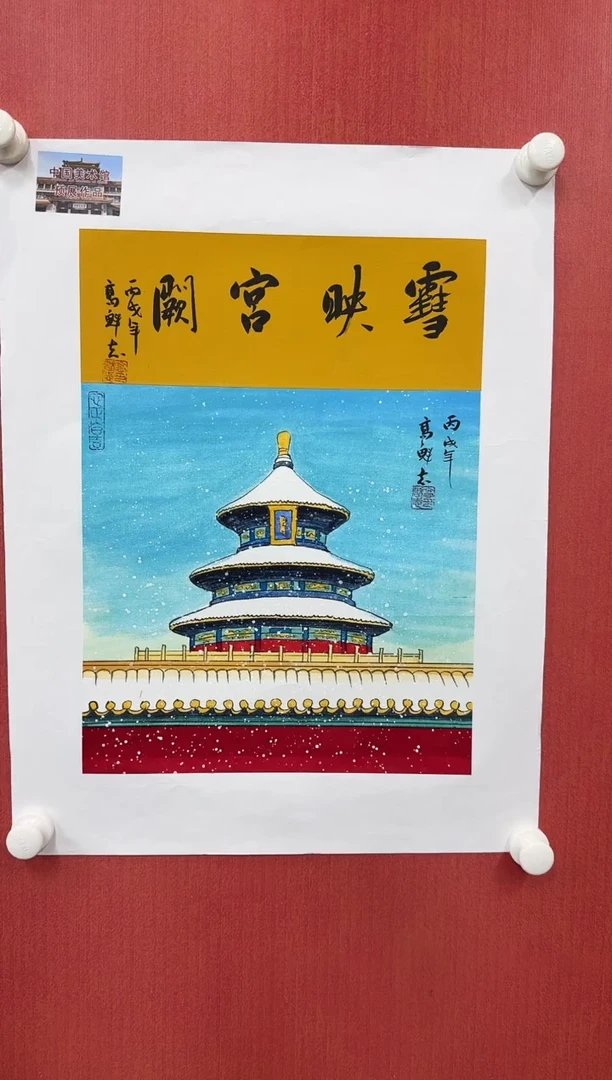 中国美术馆
候展作品
雪映宫阙
丙戌年
高野志
丙戌年
高野志